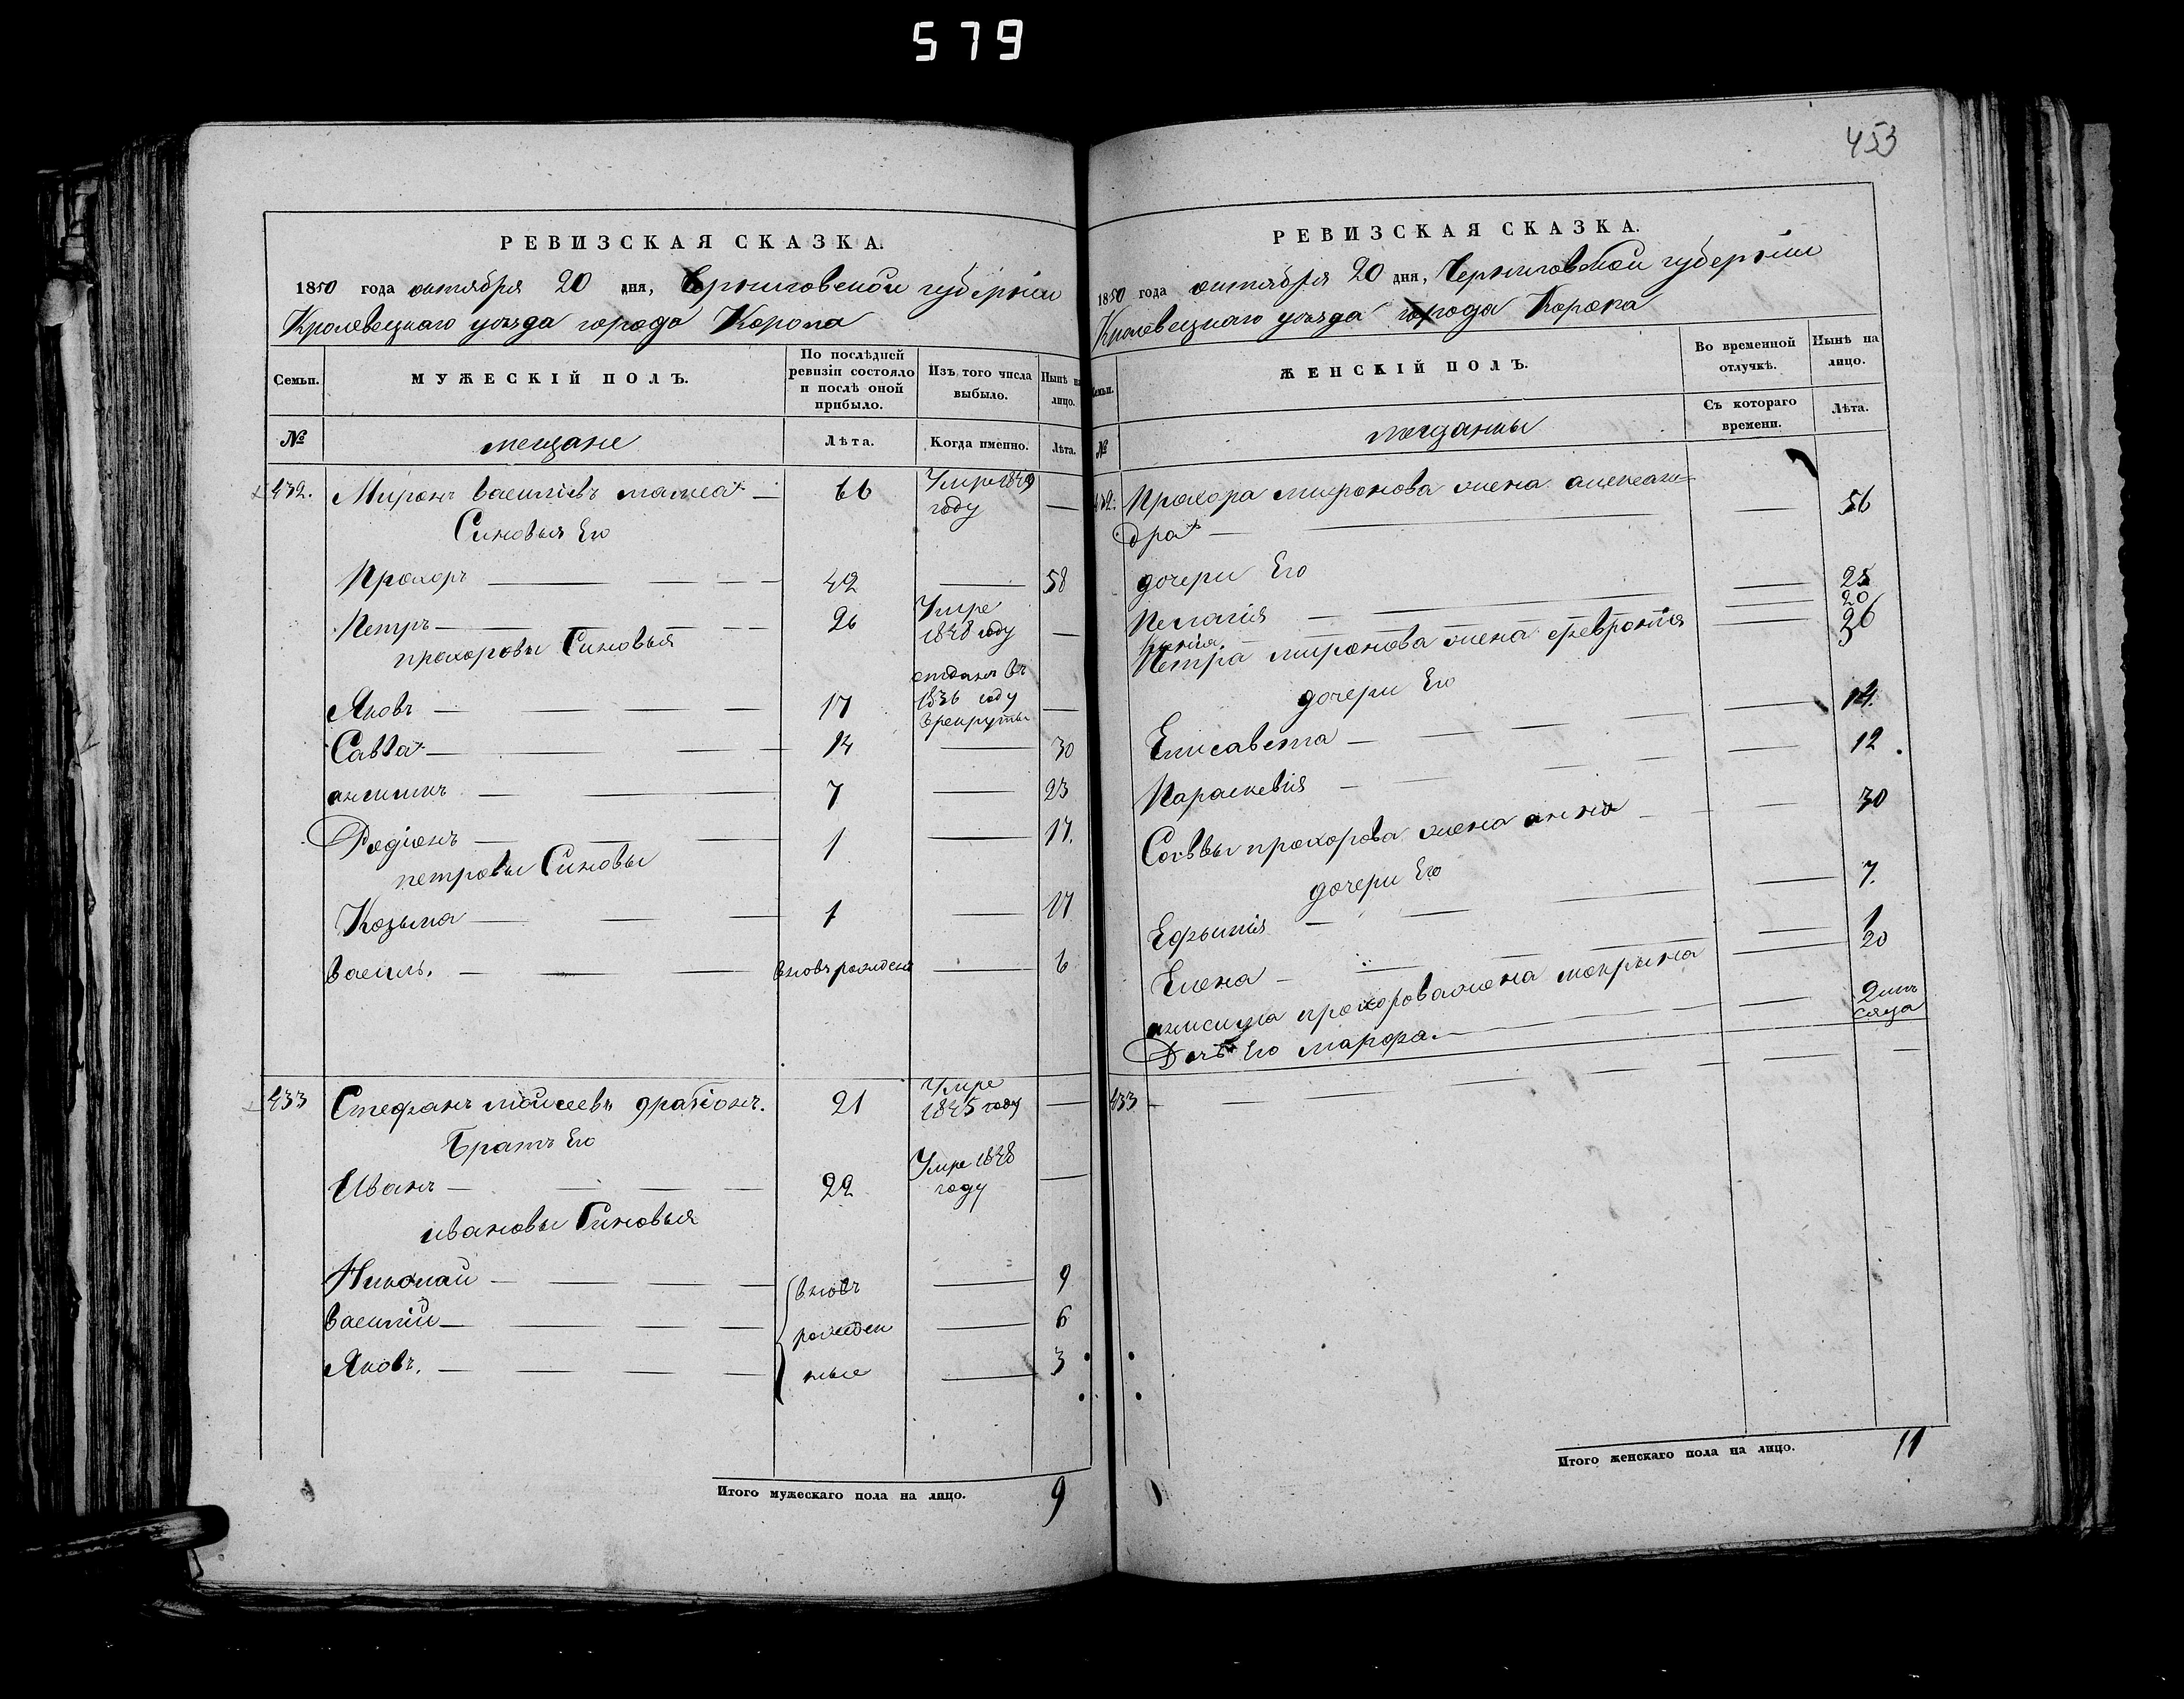 579
РЕВИЗСКАЯ СКАЗКА.
1850 года октября 20 дня, Черниговской губернiи
Кролевецкаго уѣзда города Коропа
Семьи. МУЖЕСКIЙ ПОЛЪ. По послѣдней ревизiи состояло и послѣ оной прибыло. Изъ того числа выбыло. Нынѣ на лицо.
№ мещане Лѣта. Когда именно. Лѣта.
432. Миронъ Васильевъ 66 Умре 1849 году —
Синовья Его
Прохоръ — 42 — 58
Петръ — 26 Умре 1848 году —
прохоровы Синовья
Яковъ — 17 отданъ въ 1836 году в рекруты —
Савва — 14 — 30
анисимъ — 7 — 23
Родiонъ — 1 — 17.
петровы Синовы
Козьма — 1 — 17
Василь. — вновь рожденъ — 6
433 Стефанъ Моисеевъ 21 Умре 1845 году —
Братъ Его
Иванъ — 22 Умре 1848 году —
ивановы Синовья
Николай — вновь — 9
Василiй — рожден — 6
Яковъ. — ные — 3
Итого мужескаго пола на лицо. 9
453
РЕВИЗСКАЯ СКАЗКА.
1850 года октября 20 дня, Черниговской губернiи
Кролевецкаго уѣзда города Коропа
Семьи. ЖЕНСКIЙ ПОЛЪ. Во временной отлучкѣ. Нынѣ на лицо.
№ мещанки Съ котораго времени. Лѣта.
432. Прохора миронова жена алексан=
дра — — 56
дочери Его
Пелагiя — — 25
— 20
Петра миронова жена февронiя — 36
дочери Его
Елисавета — — 14.
Параскевiя — — 12
Саввы прохорова жена анна — — 30
дочери Его
Ефимiя — — 7.
Елена — — 1
анисима прохорова жена мокрына — 20
Дочь Его марфа. — — 2 мѣсяца
433 — — —
Итого женскаго пола на лицо. 11